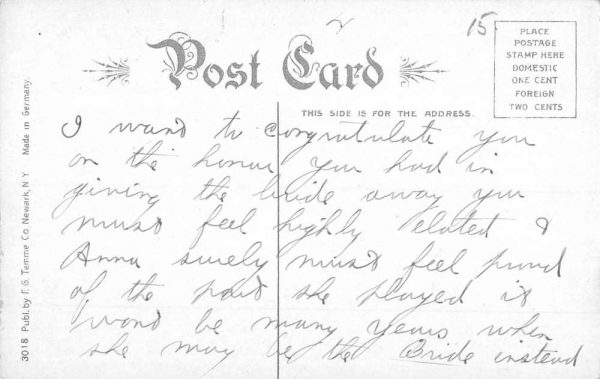 15
PLACE
POSTAGE
STAMP HERE
DOMESTIC
ONE CENT
FOREIGN
TWO CENTS
Post Card
THIS SIDE IS FOR THE ADDRESS.
3018 Publ. by F. G. Temme Co. Newark, N.Y Made in Germany.
I want to congratulate you
on the honor you had in
giving the bride away you
must feel highly elated &
Anna surely must feel proud
of the part she played it
wont be many years when
she may be the Bride instead